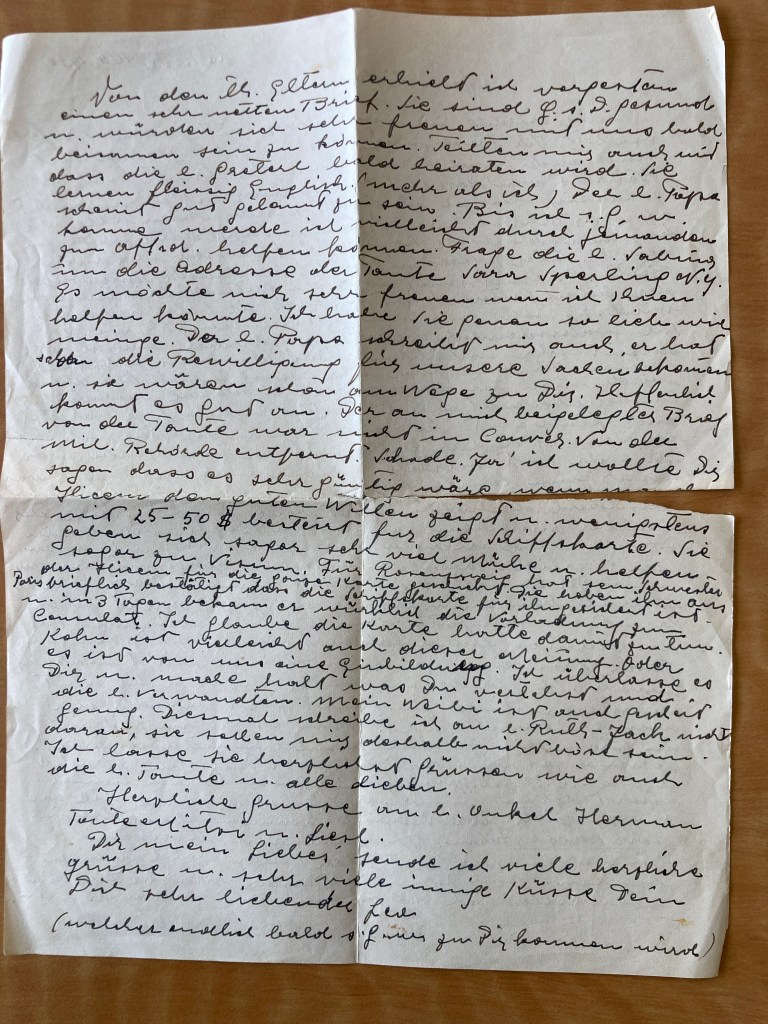 Von den lb. Eltern erhielt ich vorgestern
einen sehr netten Brief. Sie sind G. s. D. gesund
u. würden sich sehr freuen mit uns bald
beisamen sein zu können. Teilten mir auch mit
dass die l. Greterl bald heiraten wird. Sie
lernen fleissig Englisch. (mehr als ich) Der l. Papa
scheint gut gelaunt zu sein. Bis ich s. G. w.
komme werde ich vielleicht durch jemanden
zum Affid. helfen können. Frage die l. Sabina
um die Adresse der Tante Sara Sperling N.Y.
Es möchte mich sehr freuen wen ich Ihnen
helfen könnte. Ich habe Sie genau so lieb wie
meinige. Der l. Papa schreibt mir auch, er hat
schon die Bewilligung für unsere Sachen bekomen
u. sie wären schon am Wege zu Dir. Hoffentlich
kommt es gut an. Der an mich beigelegter Brief
von der Tante war nicht in Couver. Von der
Mil. Behörde entfernt. Schade. Ja' ich wollte Dir
sagen dass es sehr günstig wäre wenn man
Hicem den guten Willen zeigt u. wenigstens
mit 25-50 $ beiteirt für die Schiffskarte. Sie
geben sich sogar sehr viel Mühe u. helfen
sogar zu Visum. Für Rosenzweig hat sein Schwester
der Hicem für die ganse Karte geschickt. Die haben ihm aus
Paris brieflich bestätigt dass die Schiffskarte für ihn gesichert ist.
u. in 3 Tagen bekam er wirklich die Vorladung zum
Consulat. Ich glaube die Karte hatte damit zu tun.
Kohn ist vielleicht auch dieser Meinung. Oder
es ist von uns eine Einbildung. Ich überlasse es
Dir u. mache halt was Du verstehst und
die l. Verwandten. Mein Weibi ist auch gescheit
genug. Diesmal schreibe ich an l. Ruth-Jack nicht
daran, sie sollen mir deshalb nicht böse sein.
Ich lasse sie herzlichst Grüssen wie auch
die l. Tante u. alle lieben.
Herzliche Grüsse am l. Onkel Herman
Tante u. Liesl.
Dir mein Liebes, sende ich viele herzliche
grüsse u. sehr viele innige Küsse Dein
Dich sehr liebender Leo
(welcher endlich bald s. G. w. zu Dir kommen wird)